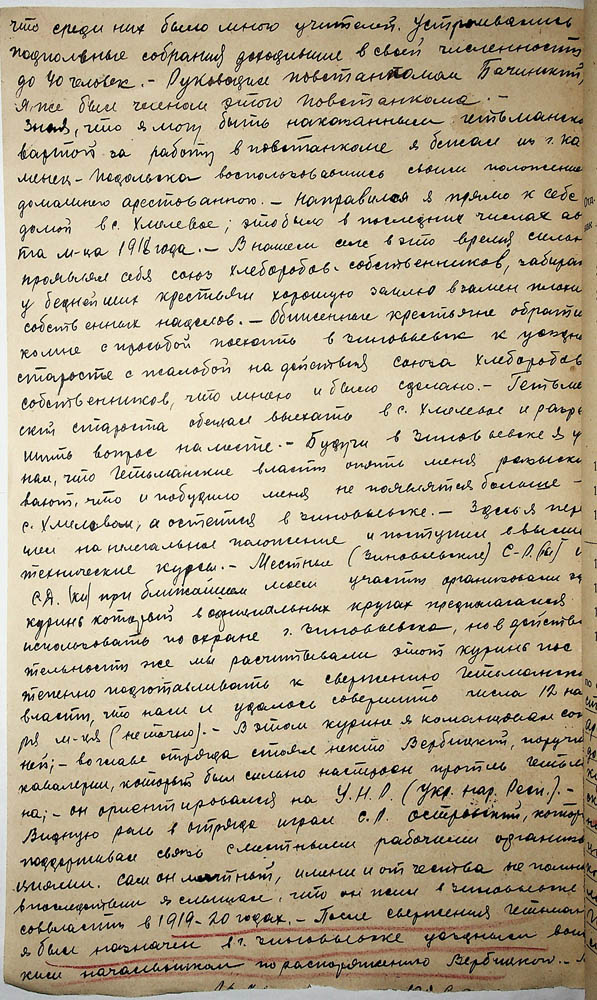 что среди них было много учителей. Устраивались
подпольные собрания доходившие в своей численности
до 40 человек. – Руководил повстанкомом Бачинский,
я же был членом этого повстанкома. –
Зная, что я могу быть наказанным гетьманско
вартой за работу в повстанкоме я бежал из г. Ка
менец-Подольска воспользовавшись своим положение
домашнего арестованного. – Направился я прямо к себе
домой в с. Хмелевое; это было в последних числах ав
та м-ца 1918 года. – В нашем селе в это время сильно
проявлял себя союз хлеборобов-собственников, забирая
у беднейших крестьян хорошую землю взамен плохих
собственных наделов. – Обиженные крестьяне обрати
ко мне с просьбой поехать в Зиновьевск к уездно
старосте с жалобой на действия союза хлеборобов
собственников, что мною и было сделано. – Гетьма
ский староста обещал выехать в с. Хмелевое и разре
шить вопрос на месте. – Будучи в Зиновьевске я у
нал, что Гетьманские власти опять меня разыски
вают, что и побудило меня не появлятся больше –
с. Хмелевом, а остатся в Зиновьевске. – Здесь я пер
шел на нелегальное положение и поступил в высши
технические курсы. – Местные (Зиновьевские) С-Р. и
С.Д. при ближайшем моем участии организовали
курень который в официальных кругах предполагался
использовать по охране г. Зиновьевска, но в действи
тельности же мы расчитывали этот курень пос
тепенно подготавливать к свержению Гетьманско
власти, что нам и удалось совершить числа 12 на
ря м-ца (не точно). – В этом курине я командовал сот
ней; – во главе отряда стоял некто Вербицкий, поручик
кавалерии, который был сильно настроен против Гетьма
на; – он ориентировался на У.Н.Р. (Укр. нар. Респ.). –
Видную роль в отряде играл с.р. Островский, котор
поддерживал связь с местными рабочими организа
циями. Сам он местный, имени и отчества не помню
впоследствии я слышал, что он был в Зиновьевске
совласти в 1919-20 годах. – После свержения Гетьман
я был назначен в г. Зиновьевске уездным воин
ским начальником по распоряжению Вербицкого. –